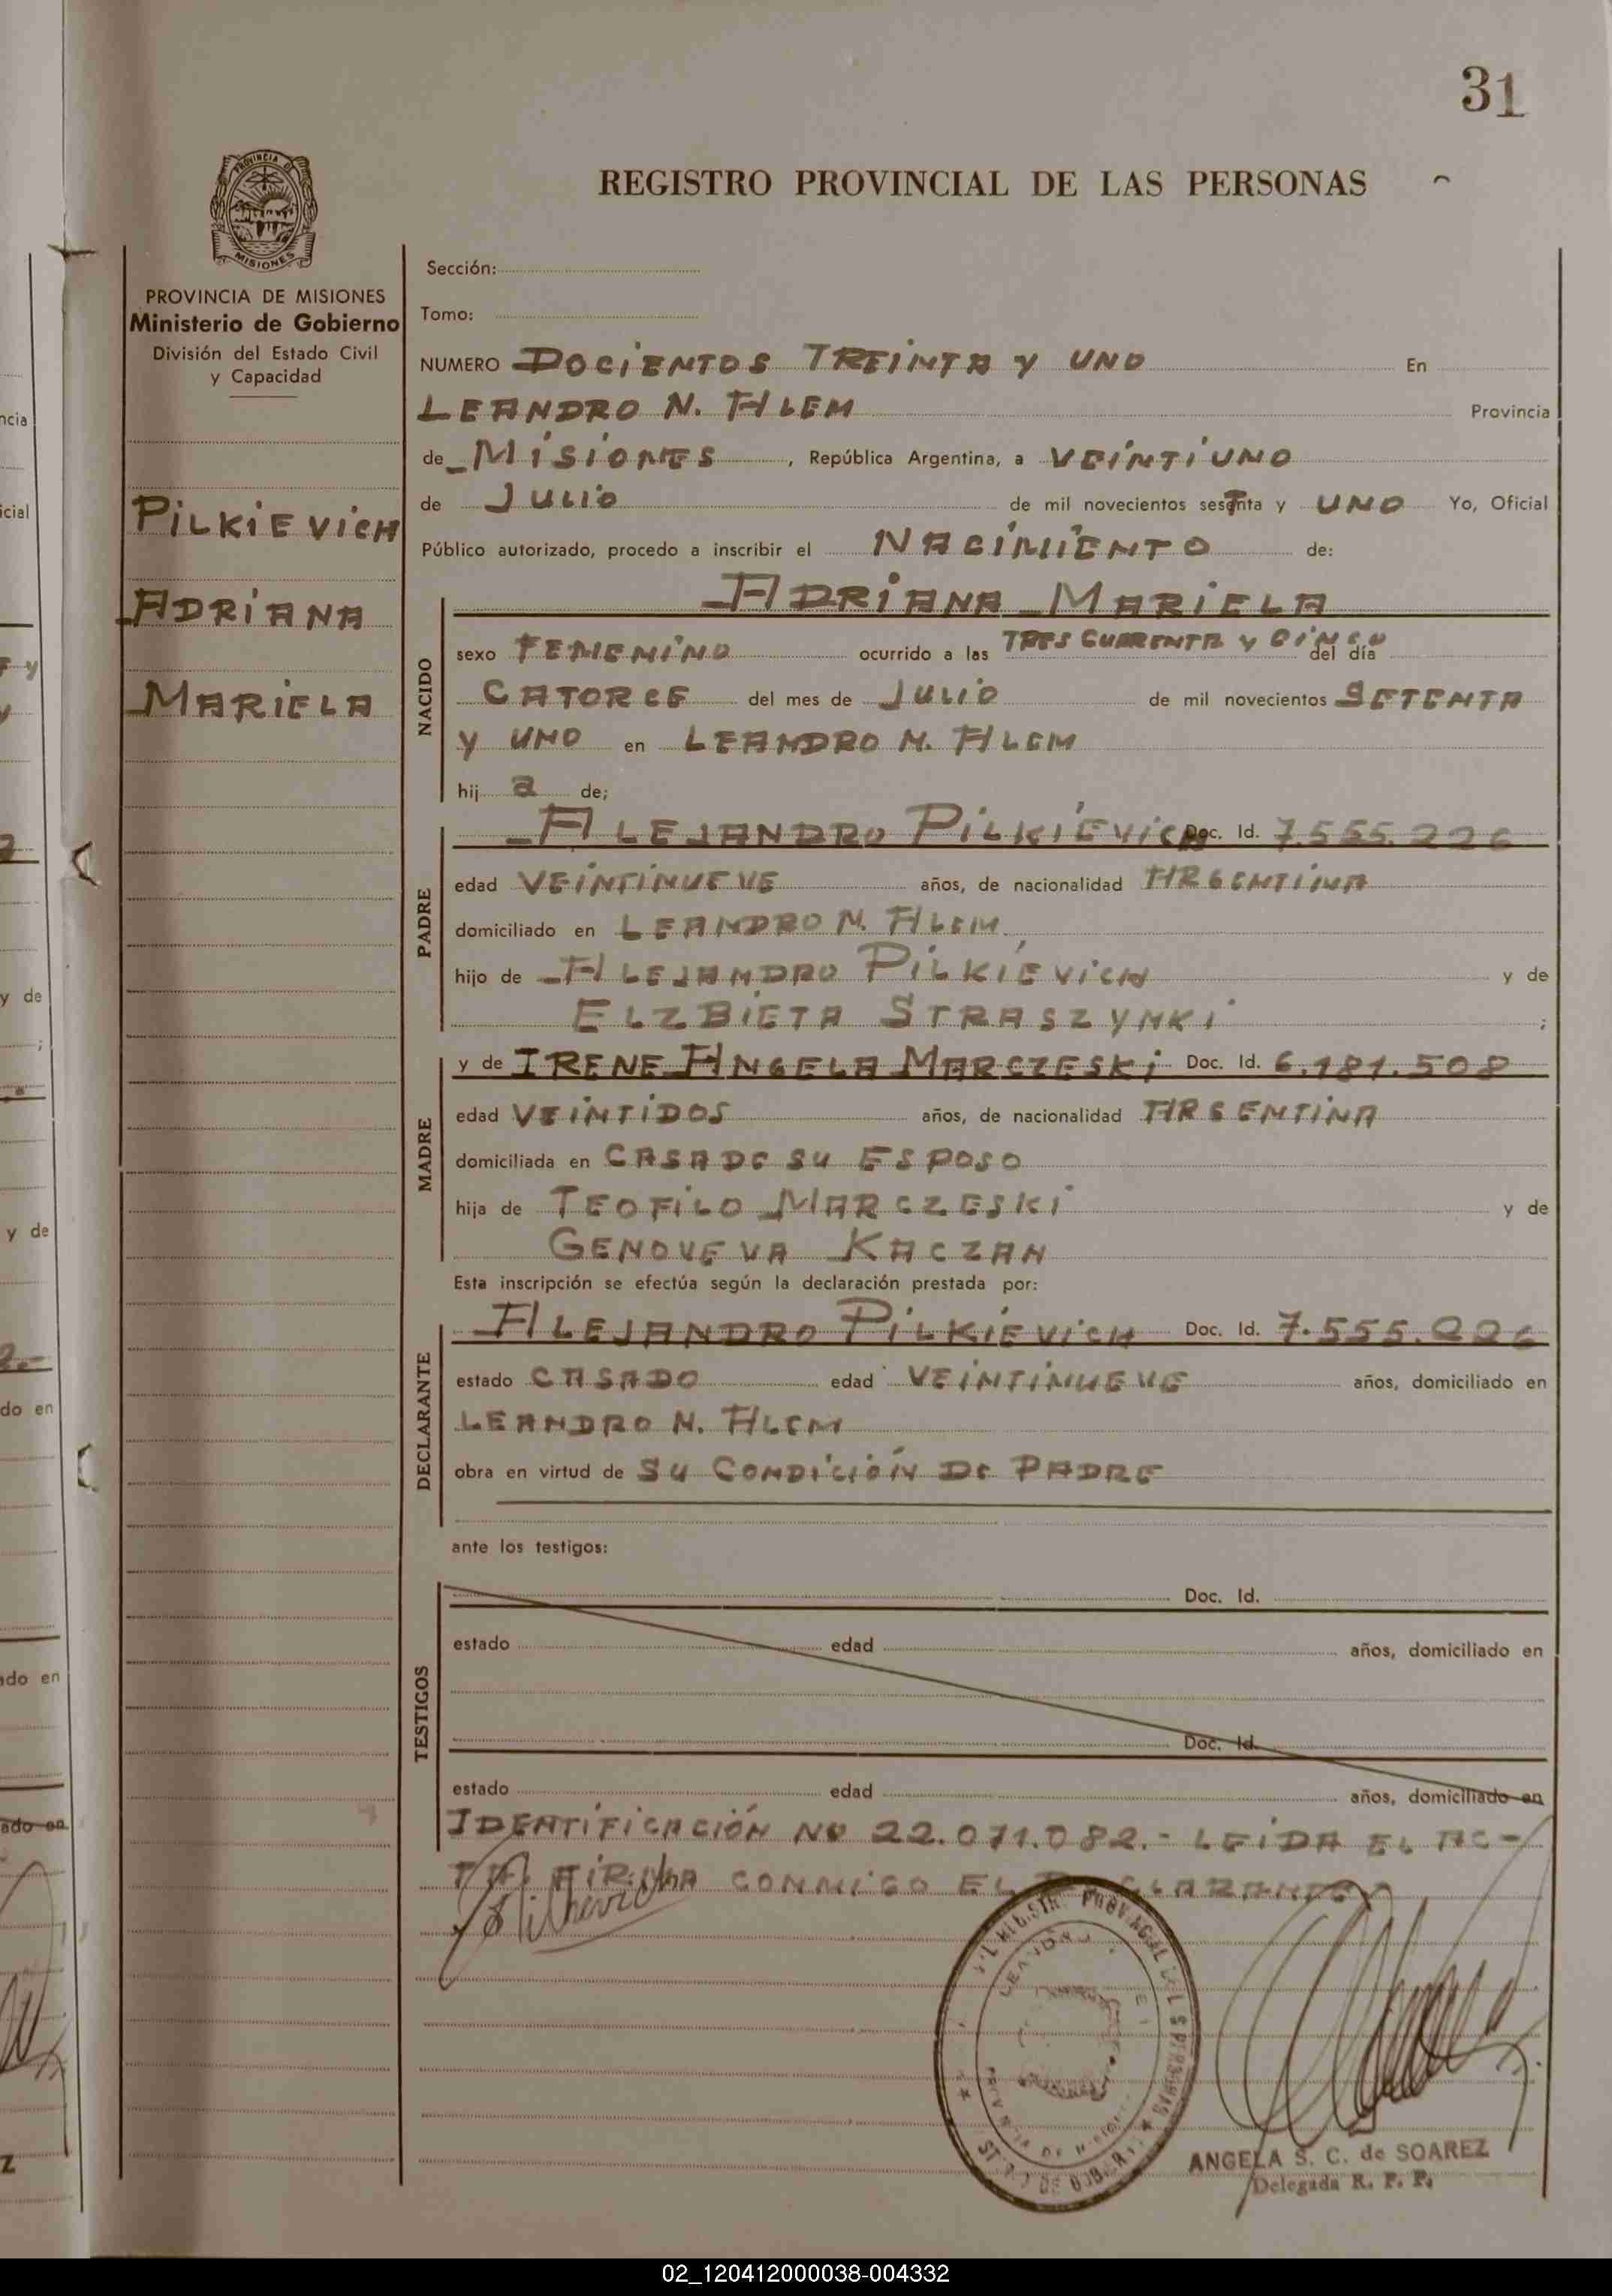 31
REGISTRO PROVINCIAL DE LAS PERSONAS
PROVINCIA DE MISIONES
MISIONES
PROVINCIA DE MISIONES
Ministerio de Gobierno
División del Estado Civil
y Capacidad
PILKIEVICH
ADRIANA
MARIELA
Sección:
Tomo:
NUMERO DOCIENTOS TREINTA Y UNO En
LEANDRO N. ALEM Provincia
de MISIONES, República Argentina, a VEINTIUNO
de JULIO de mil novecientos setenta y UNO Yo, Oficial
Público autorizado, procedo a inscribir el NACIMIENTO de:
NACIDO
ADRIANA MARIELA
sexo FEMENINO ocurrido a las TRES CUARENTA Y CINCO del día
CATORCE del mes de JULIO de mil novecientos SETENTA
Y UNO en LEANDRO N. ALEM
hij a de;
PADRE
ALEJANDRO PILKIEVICH Doc. Id. 7.555.226
edad VEINTINUEVE años, de nacionalidad ARGENTINA
domiciliado en LEANDRO N. ALEM
hijo de ALEJANDRO PILKIEVICH y de
ELZBIETA STRASZYNKI ;
MADRE
y de IRENE ANGELA MARCZESKI Doc. Id. 6.181.508
edad VEINTIDOS años, de nacionalidad ARGENTINA
domiciliada en CASA DE SU ESPOSO
hija de TEOFILO MARCZESKI y de
GENOVEVA KACZAN
Esta inscripción se efectúa según la declaración prestada por:
DECLARANTE
ALEJANDRO PILKIEVICH Doc. Id. 7.555.226
estado CASADO edad VEINTINUEVE años, domiciliado en
LEANDRO N. ALEM
obra en virtud de SU CONDICIÓN DE PADRE
ante los testigos:
TESTIGOS
Doc. Id.
estado edad años, domiciliado en
Doc. Id.
estado edad años, domiciliado en
IDENTIFICACIÓN Nº 22.071.082.- LEIDA EL AC-
TA FIRMA CONMIGO EL DECLARANTE
ANGELA S. C. de SOAREZ
Delegada R. P. P.
02_120412000038-004332